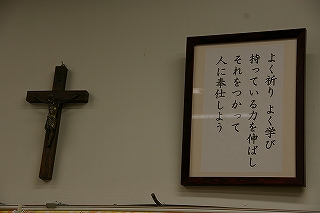 よく祈り よく学び
持っている力を伸ばし
それをつかって
人に奉仕しよう